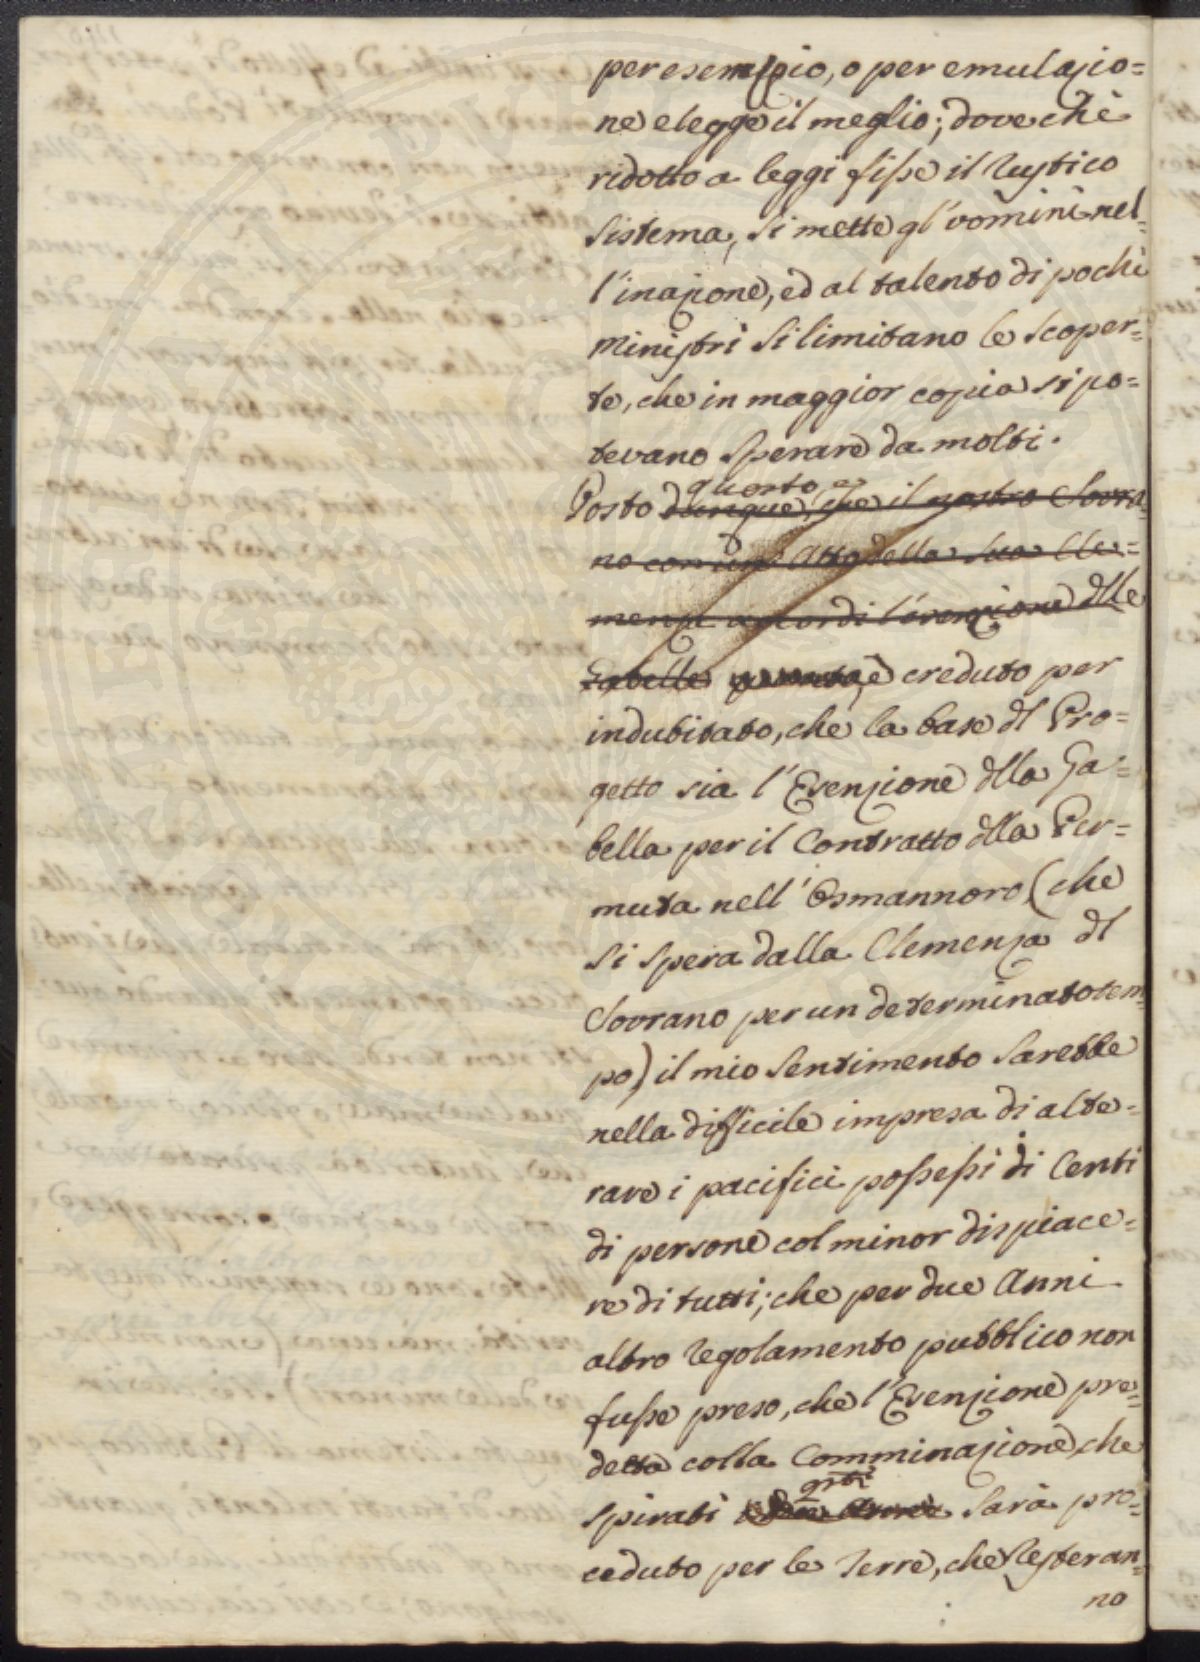 per esempio, o per emulazio=
ne elegge il meglio; dove chè
ridotto a leggi fisse il rustico
sistema, si mette gl'uomini nel=
l'inazione, ed al talento di pochi
Ministri si limitano le scoper=
te, che in maggior copia si po=
tevano sperare da molti.
questo e
Posto dunque, che il nostro Sovra=
no con un Atto della sua Cle=
menza accordi l'esenzione dlle
Gabelle è creduto per
indubitato, che la base dl Pro=
getto sia l'Esenzione dlla Ga=
bella per il Contratto dlla Per=
muta nell'Osmannoro (che
si spera dalla Clemenza dl
Sovrano per un determinato tem=
po) il mio sentimento sarebbe
nella difficile impresa di alte=
rare i pacifici possessi di Centi
di persone col minor dispiace=
re di tutti; che per due Anni
altro regolamento pubblico non
fusse preso, che l'Esenzione pre=
detta colla Comminazione, che
spirati sarà pro=
ceduto per le Terre, che resteran=
no